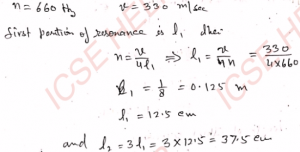 n = 660 Hz    v = 330 m/sec
first portion of resonance is l₁ then
n = v/4l₁ ⇒ l₁ = v/4n = 330/4×660
l₁ = 1/8 = 0.125 m
l₁ = 12.5 cm
and l₂ = 3l₁ = 3×12.5 = 37.5 cm
ICSE HE
ICSE HEL